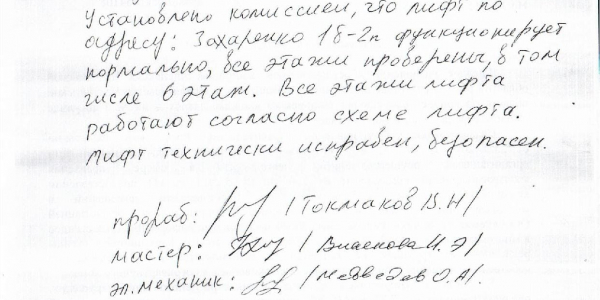 Установлено комиссией, что лифт по
адресу: Захаренко 1б-2п функционирует
нормально, все этажи проверены, в том
числе 6 этаж. Все этажи лифта
работают согласно схеме лифта.
Лифт технически исправен, безопасен.
прораб: /Токмаков В.Н/
мастер: /Власкова И.Э/
эл.механик: /Медведев О.А/.